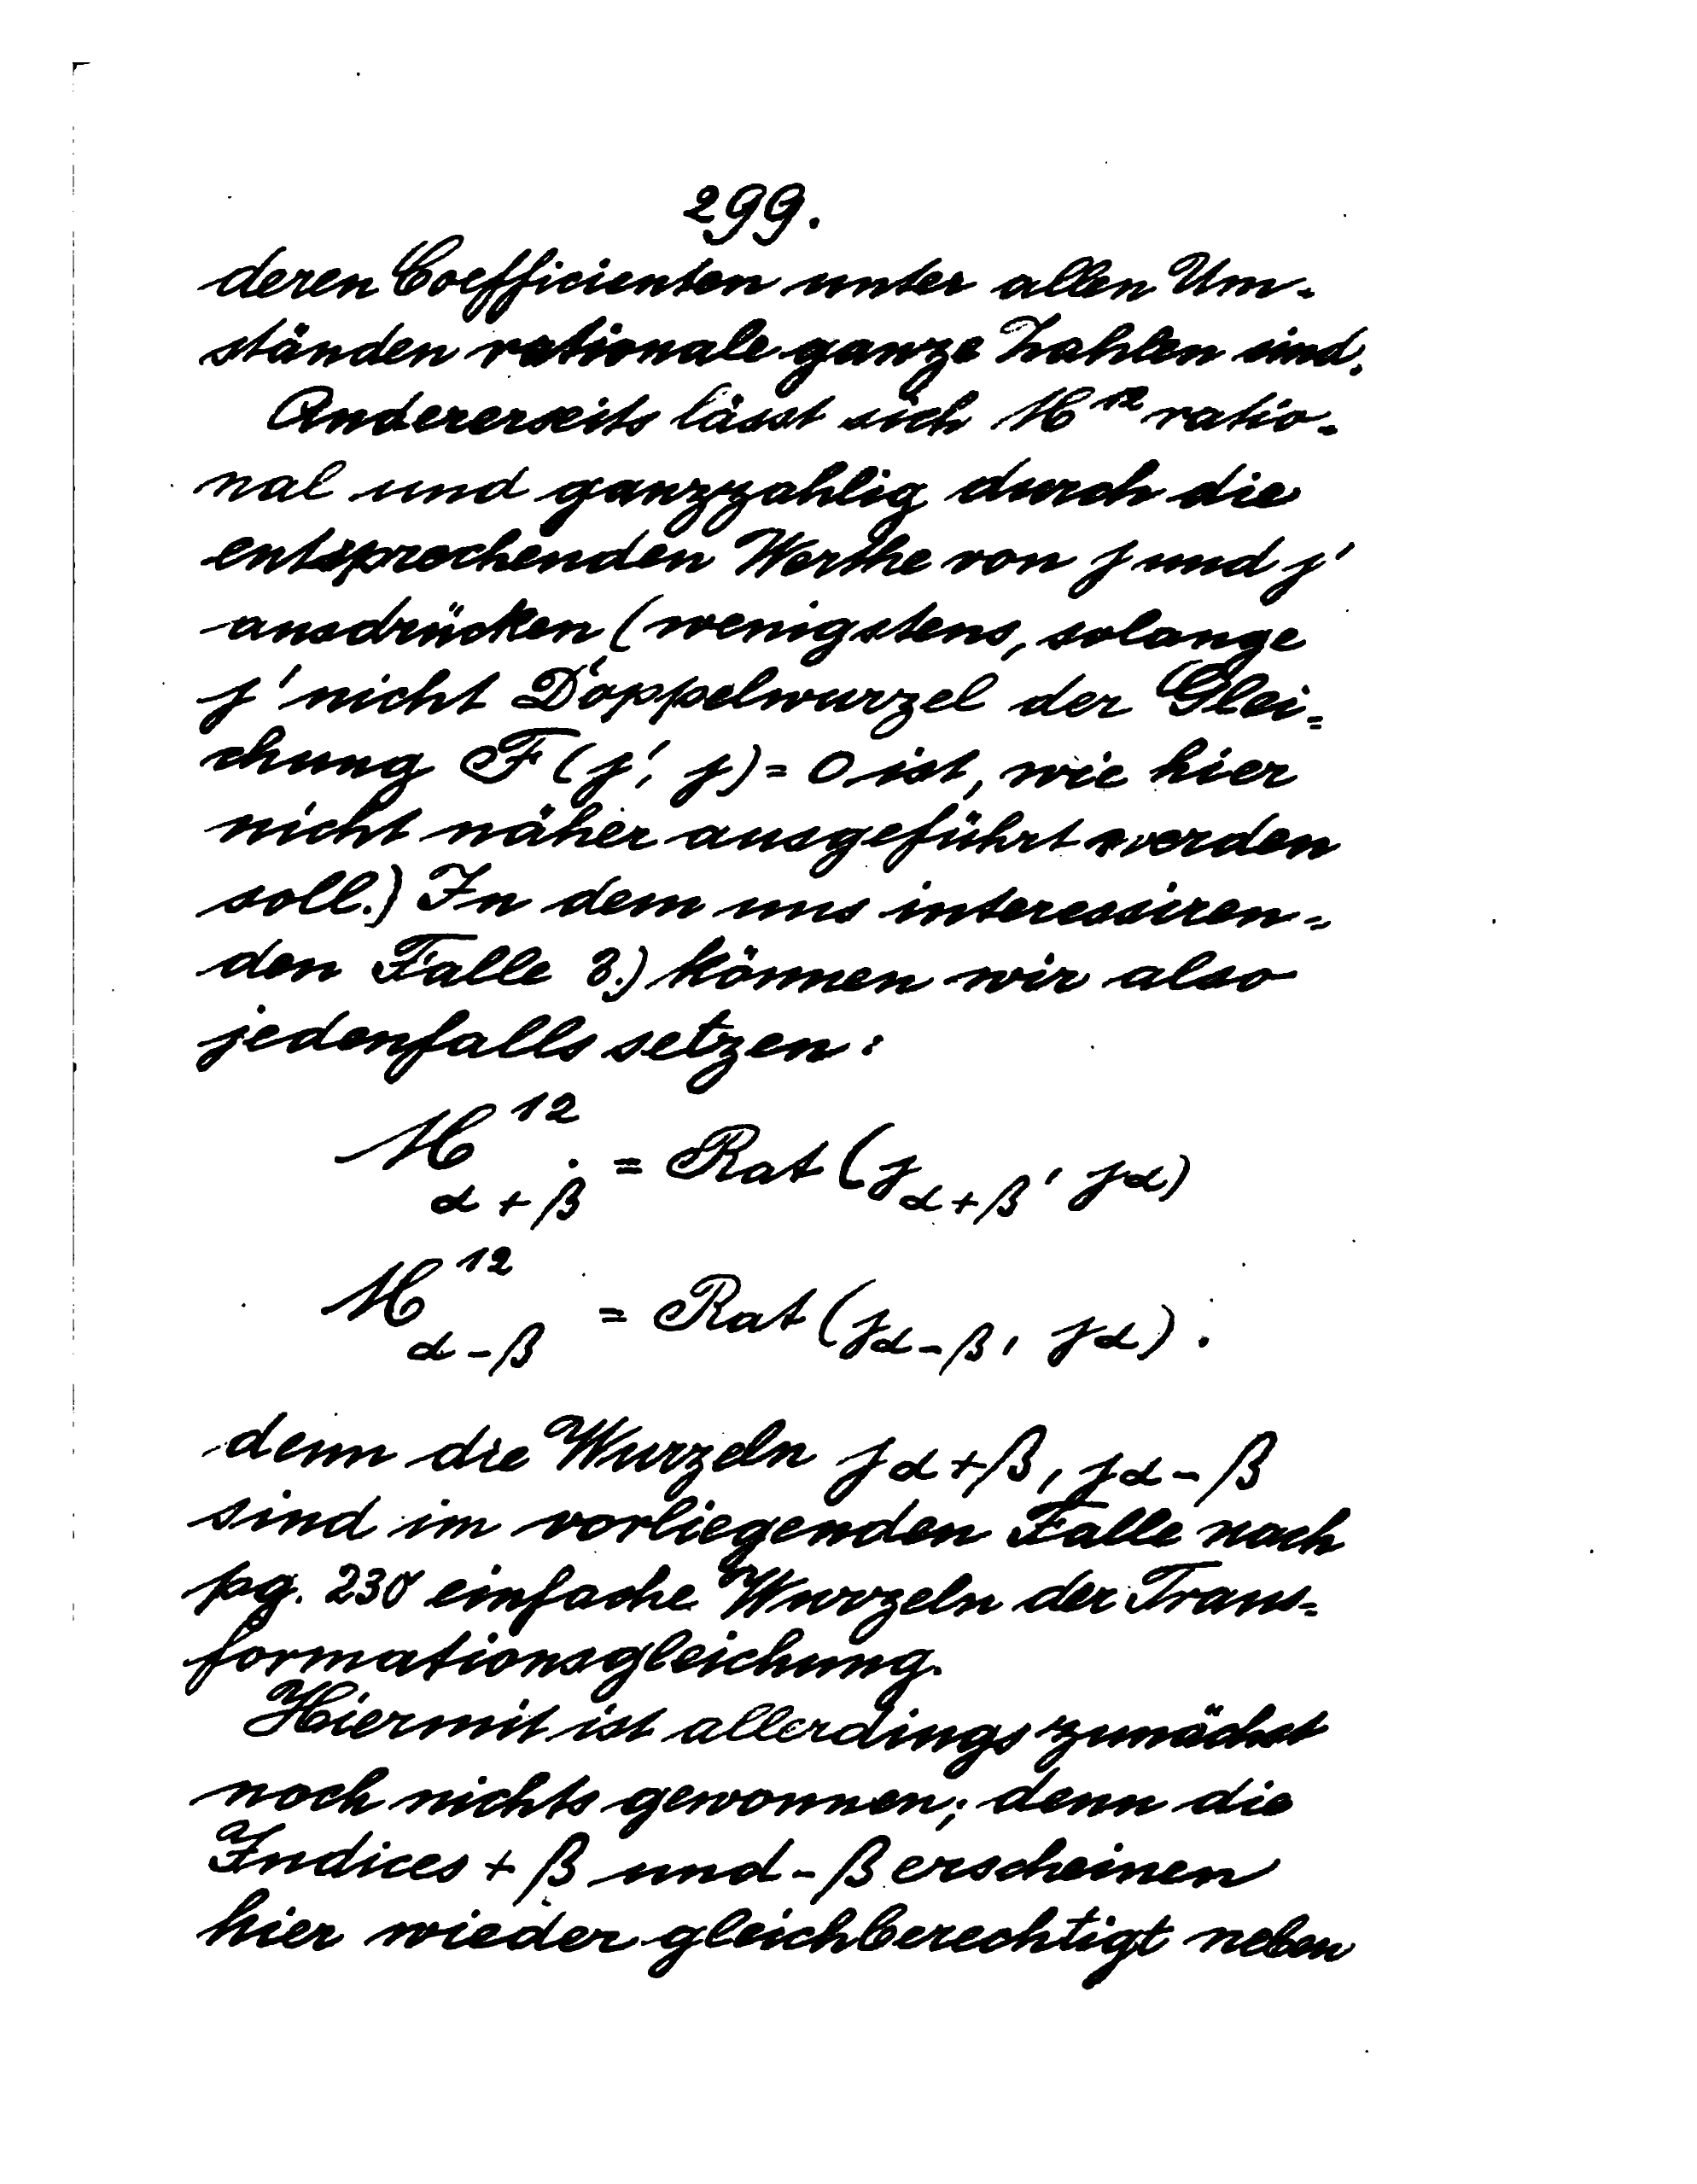 299.
deren Coefficienten unter allen Um-
ständen rationale ganze Zahlen sind.
Andererseits lässt sich M^12 ratio-
nal und ganzzahlig durch die
entsprechenden Werthe von j und j'
ausdrücken (wenigstens, solange
j' nicht Doppelwurzel der Glei-
chung F(j', j) = 0 ist, wie hier
nicht näher ausgeführt werden
soll.) In dem uns interessiren-
den Falle 3.) können wir also
jedenfalls setzen:
M^12_{α+β} = Rat (j_{α+β}, j_α)
M^12_{α-β} = Rat (j_{α-β}, j_α).
denn die Wurzeln j_{α+β}, j_{α-β}
sind im vorliegenden Falle nach
pg. 230 einfache Wurzeln der Trans-
formationsgleichung.
Hiermit ist allerdings zunächst
noch nichts gewonnen; denn die
Indices + β und - β erscheinen
hier wieder gleichberechtigt neben